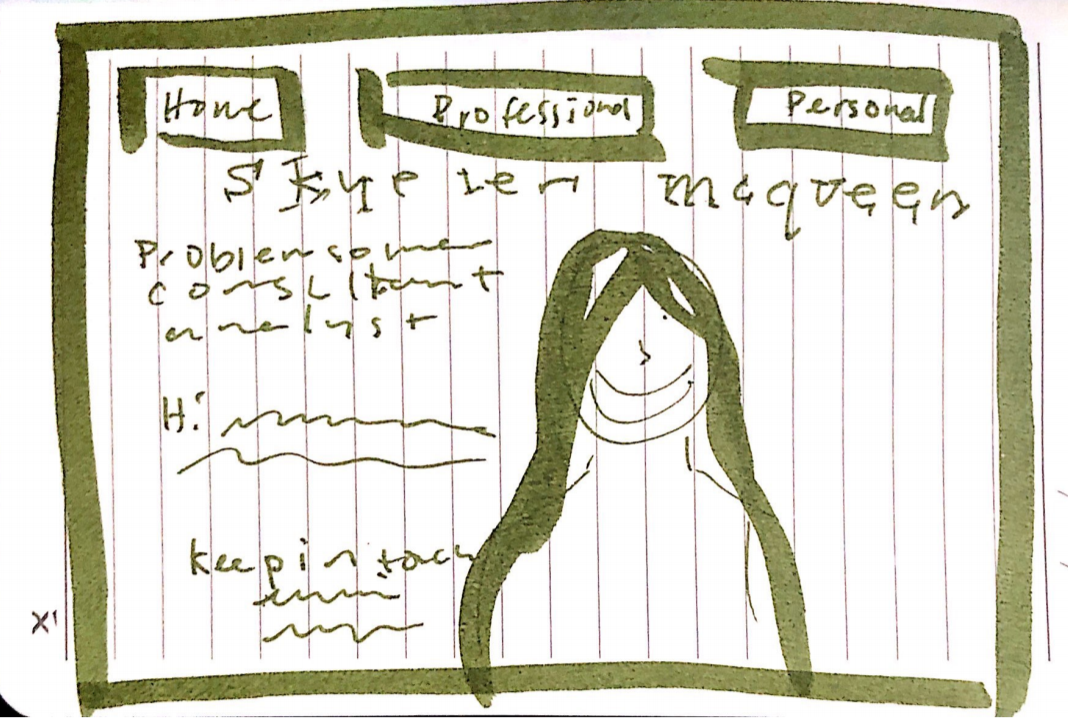 Home Professional Personal
Skyeler mcqueen
Problemsomer
consultant
analyst
Hi
Keep in touch
X